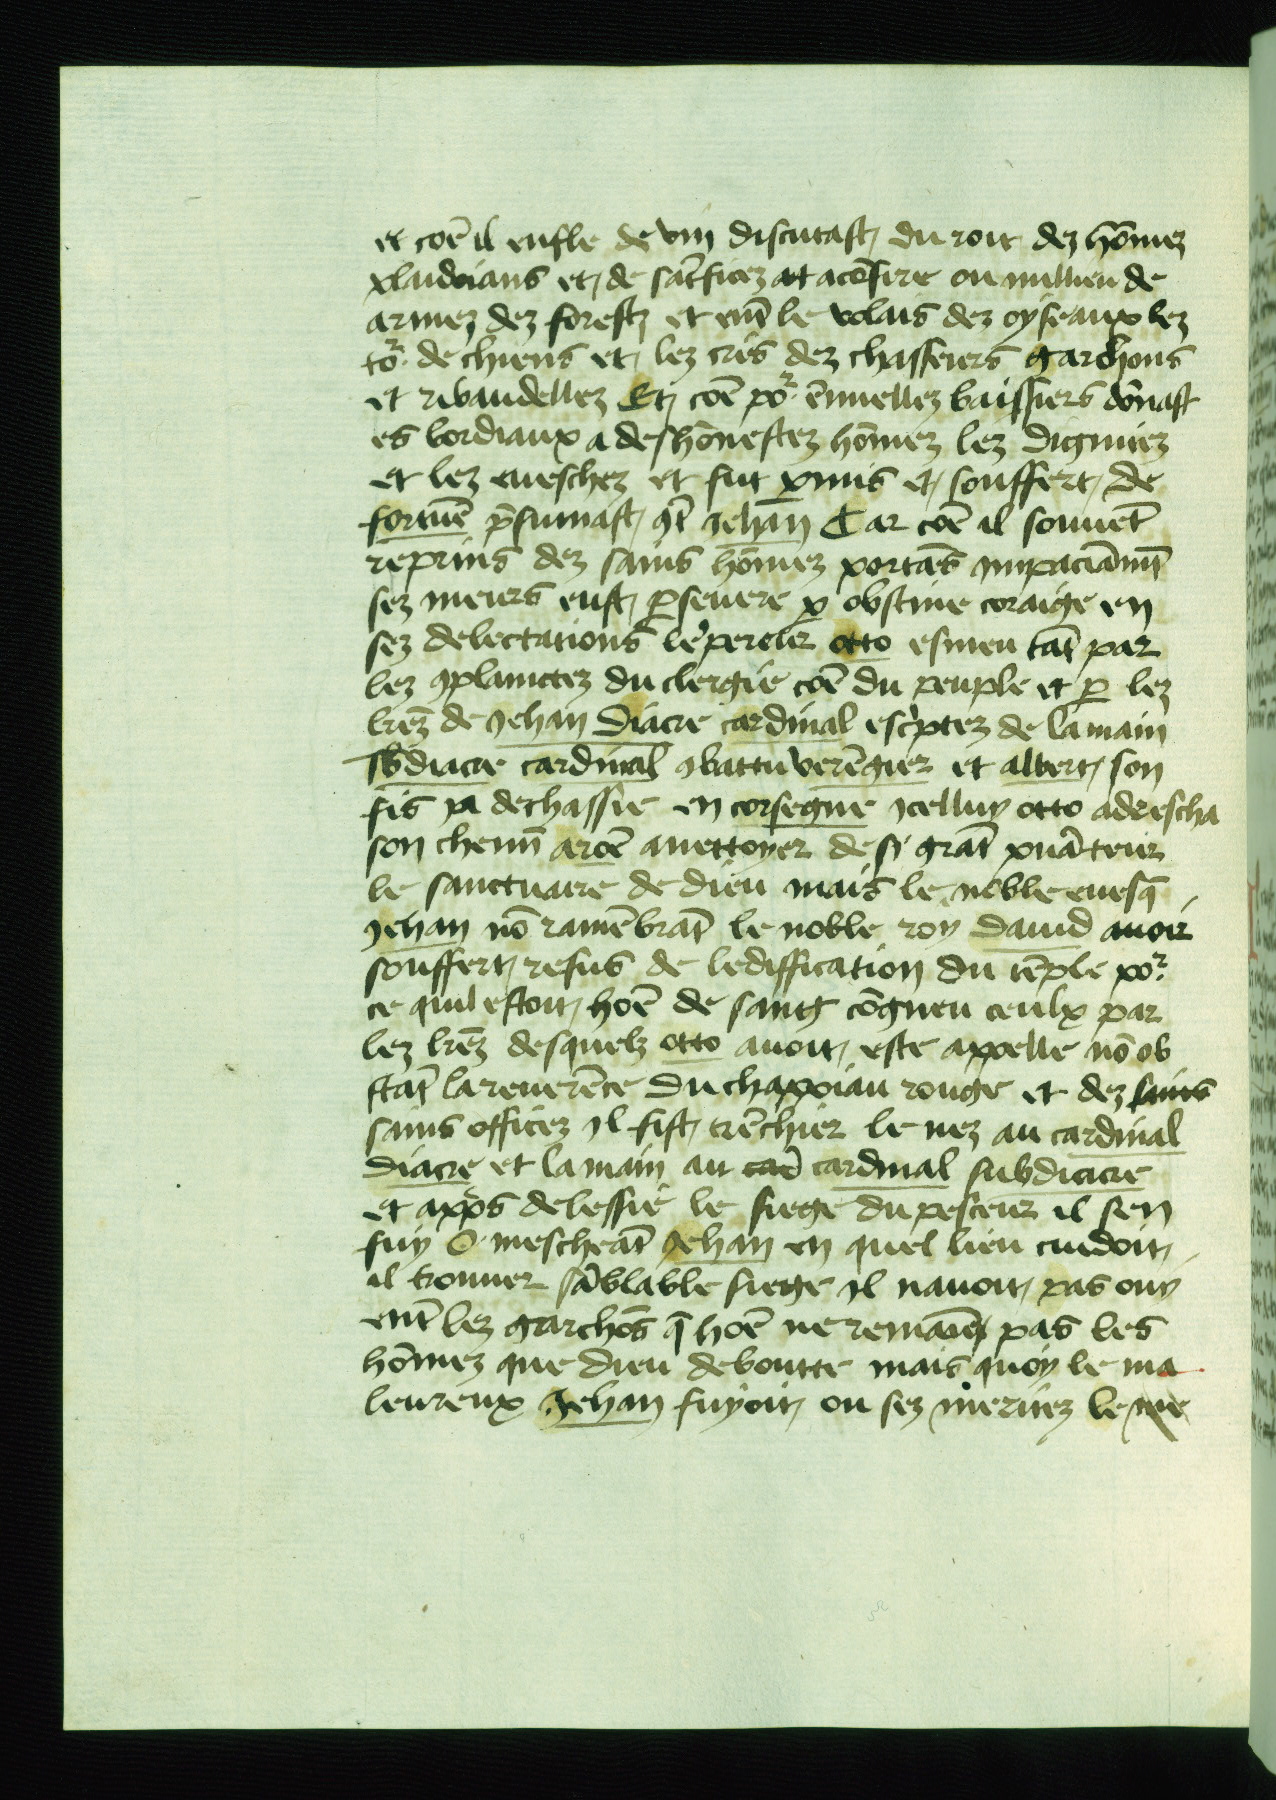 et coe͂ il enfle de vin discutast du roit dez ho͂mez
plaidoians et de sac͂ficez at aco͂sire ou millieu de
armez dez forestz et em͂ le volais dez oyseaux lez
to͂ʳ de chiens et lez cris dez chasseurs garchons
et ribaudellez Et coe͂ poʳ e͂nuellez baissiers do͂nast
es bordiaux a desho͂nestez ho͂mez lez dignitez
et lez eueschez et fut p̱mis et souffert de
fortune͂ p͂sumast q͂t Jehan Car coe͂ il souuet͂
reprins dez sains ho͂mez porta͂s impacia͂m͂t
sez meurs eust ꝑseuere ꝑ obstine coraige en
sez delectations le͂pereur otto esmeu ta͂t par
lez ꝯplainctez du clergie coe͂ du peuple et ꝑ lez
lr͂ez de Jehan diacre cardinal esc͂ptez de la main
sb͂diacre cardinal ꝯbattu vere͂guer et albert son
fis ia dechassie en corsegue icelluy otto adrescha
son chemi͂ a roe͂ a nettoyer de si gra͂t pua͂teur
le sanctuaire de dieu mais le noble euesq͂
Jehan no͂ rame͂bra͂t le noble roy dauid auoir
souffert refus de ledification du te͂ple poʳ
ce quil estoit hoe͂ de sang co͂gneu ceulx par
lez lr͂ez desquelz otto auoit este appelle no͂ ob
sta͂t la reuere͂ce du chappiau rouge et dez sains
sains officez il fist tre͂chier le nez au cardinal
diacre et la main au card͂ cardinal subdiacre
et app͂s delessie le siege du pesceur il sen
fuy O meschea͂t Jehan en quel lieu cuidoit
il trouuer sa͂blable siege il nauoit pas ouy
em͂t lez garcho͂s q͂ hoe͂ ne remaine͂ pas les
ho͂mez que dieu deboutte mais quoy le ma
leureux Jehan fuyoit ou sez meritez le me